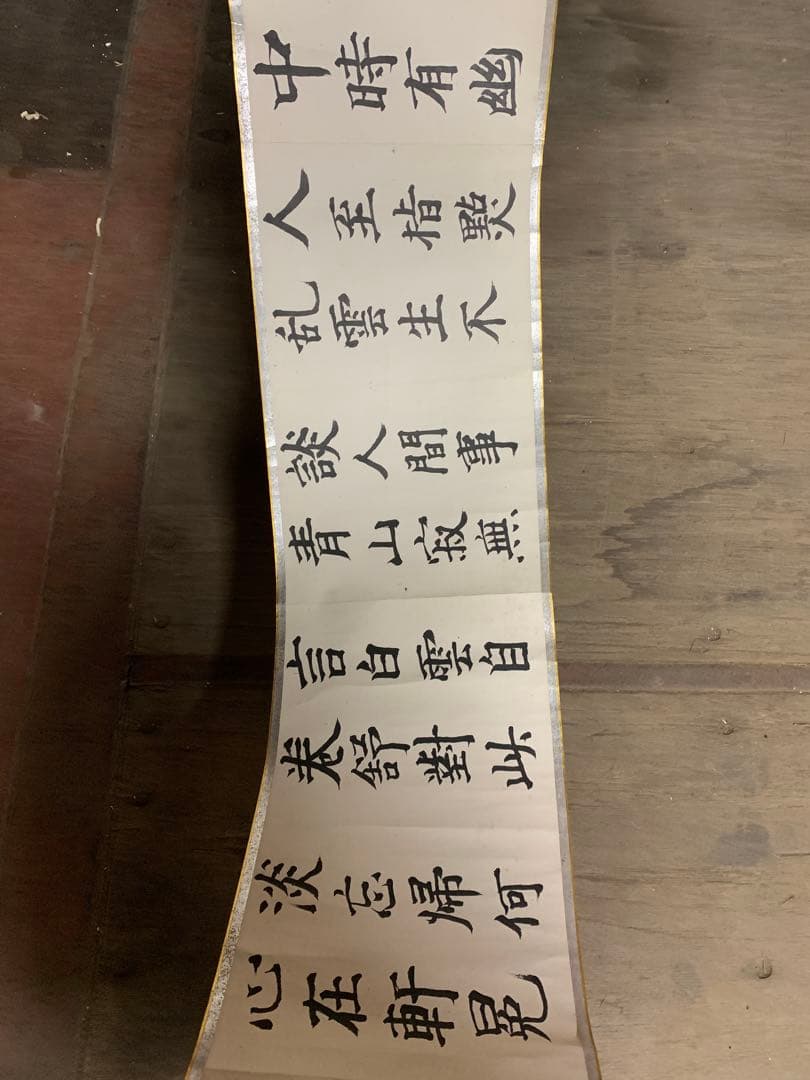 中時有幽
人至指點
乱雲生不
談人間事
青山寂無
言白雲自
卷舒對此
淡忘歸何
心在軒冕